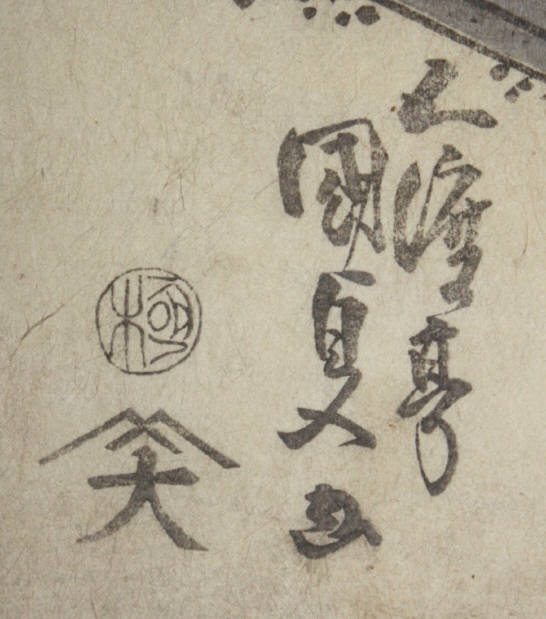 五渡亭
國貞画
極
大